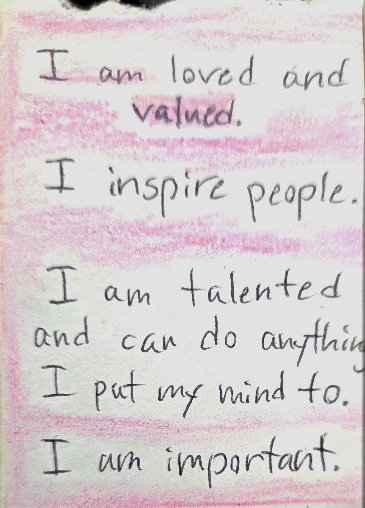 I am loved and
valued.
I inspire people.
I am talented
and can do anything
I put my mind to.
I am important.